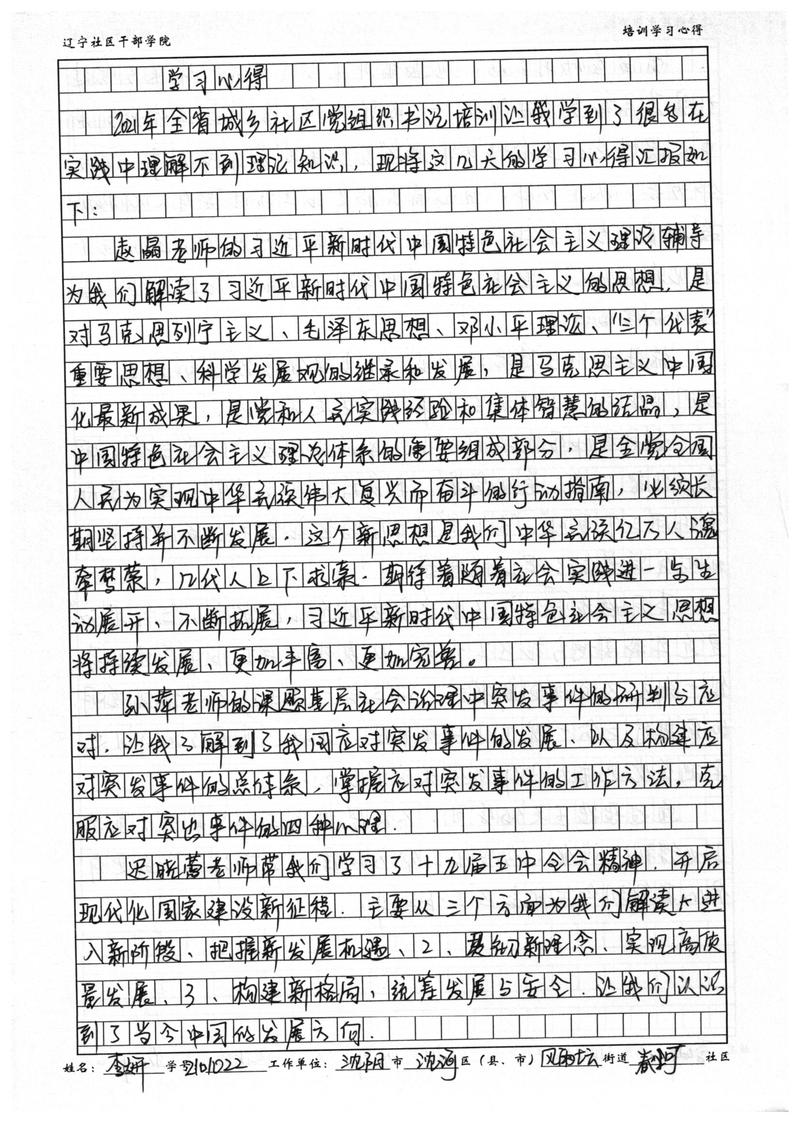 辽宁社区干部学院 培训学习心得
学习心得
2021年全省城乡社区党组织书记培训让我学到了很多在
实践中理解不到理论知识，现将这几天的学习心得汇报如
下：
赵晶老师的习近平新时代中国特色社会主义理论辅导
为我们解读了习近平新时代中国特色社会主义的思想，是
对马克思列宁主义、毛泽东思想、邓小平理论、“三个代表”
重要思想、科学发展观的继承和发展，是马克思主义中国
化最新成果，是党和人民实践经验和集体智慧的结晶，是
中国特色社会主义理论体系的重要组成部分，是全党全国
人民为实现中华民族伟大复兴而奋斗的行动指南，必须长
期坚持并不断发展．这个新思想是我们中华民族亿万人魂
牵梦萦，几代人上下求索．期待着随着社会实践进一步生
动展开、不断拓展，习近平新时代中国特色社会主义思想
将持续发展、更加丰富、更加完善。
孙萍老师的课题基层社会治理中突发事件的研判与应
对．让我了解到了我国应对突发事件的发展、以及构建应
对突发事件的总体系，掌握应对突发事件的工作方法，克
服应对突出事件的四种心理．
迟晓蕾老师带我们学习了十九届五中全会精神．开启
现代化国家建设新征程．主要从三个方面为我们解读 1、进
入新阶段、把握新发展机遇、2、贯彻新理念、实现高质
量发展、3、构建新格局，统筹发展与安全．让我们认识
到了当今中国的发展方向．
姓名：李妍 学号21010722 工作单位：沈阳市沈河区（县、市）风雨坛街道 社区